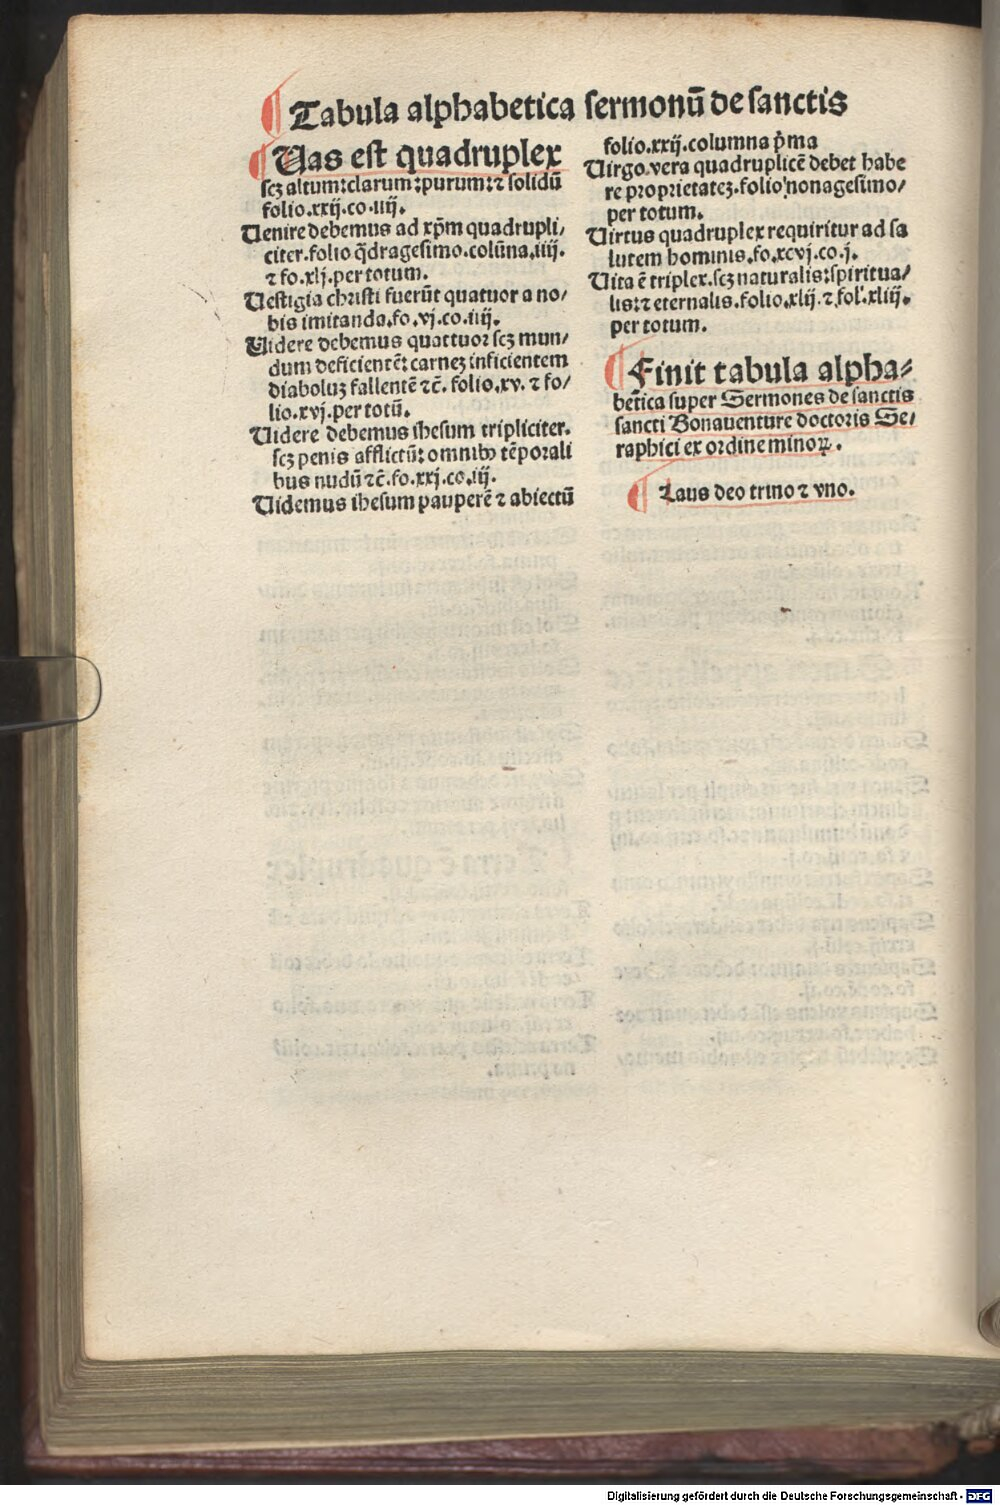 ¶ Tabula alphabetica sermonū de sanctis
¶ Vas est quadruplex
scꝫ altum:clarum:purum:⁊ solidū
folio.xxij.co.iiij.
Venire debemus ad xp̄m quadrupli/
citer.folio q̄dragesimo.colūna.iiij.
⁊ fo.xlj.per totum.
Vestigia christi fuerūt quatuor a no/
bis imitanda.fo.vj.co.iiij.
Videre debemus quattuor scꝫ mun/
dum deficientē: carneꝫ inficientem
diaboluꝫ fallentē ⁊c̄. folio.xv. ⁊ fo/
lio.xvj.per totū.
Videre debemus ihesum tripliciter.
scꝫ penis afflictū: omnibꝰ tēporali
bus nudū ⁊c̄.fo.xxj.co.iij.
Videmus ihesum pauperē ⁊ abiectū
folio.xxij.columna p̄ma
Virgo vera quadruplicē debet habe
re proprietateꝫ.folio nonagesimo/
per totum.
Virtus quadruplex requiritur ad sa
lutem hominis.fo.xcvj.co.j.
Vita ē triplex.scꝫ naturalis:spiritua/
lis:⁊ eternalis.folio.xlij.⁊.fol'.xliij.
per totum.
¶ Finit tabula alpha-
betica super Sermones de sanctis
sancti Bonauenture doctoris Se/
raphici ex ordine minoꝝ.
¶ Laus deo trino ⁊ vno.
Digitalisierung gefördert durch die Deutsche Forschungsgemeinschaft - DFG